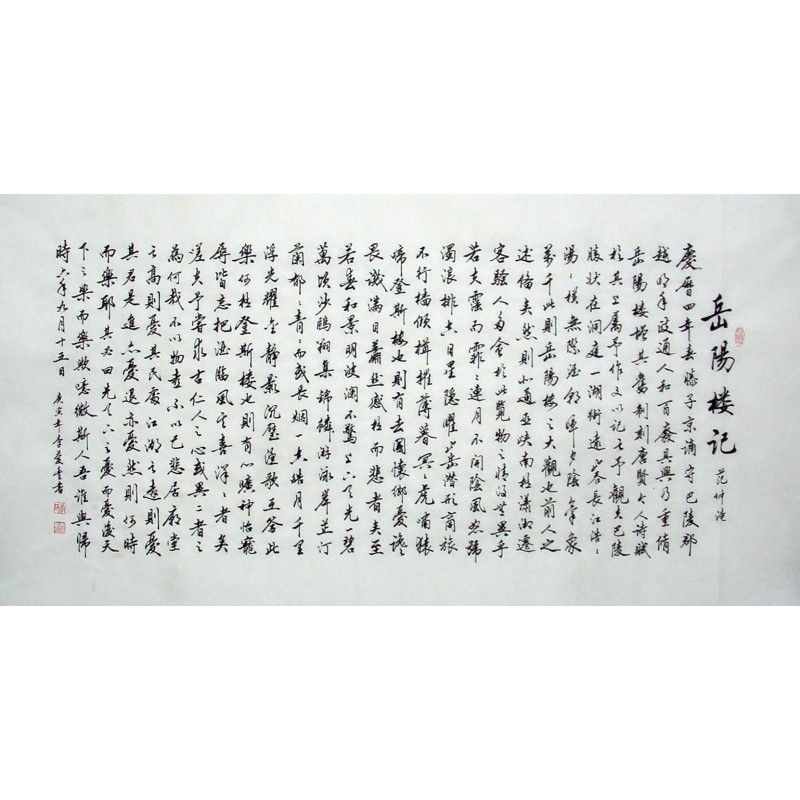 岳陽楼记
范仲淹
慶曆四年春滕子京謫守巴陵郡
越明年政通人和百廢具興乃重脩
岳陽楼增其舊制刻唐賢今人詩賦
於其上屬予作文以記之予觀夫巴陵
勝状在洞庭一湖銜遠山吞長江浩〻
湯〻橫無際涯朝暉夕陰氣象
萬千此則岳陽楼之大觀也前人之
述備矣然則北通巫峽南極瀟湘遷
客騷人多會於此覽物之情得無異乎
若夫霪雨霏〻連月不開陰風怒號
濁浪排空日星隱曜山岳潛形商旅
不行檣傾楫摧薄暮冥〻虎嘯猿
啼登斯楼也則有去國懷鄉憂讒
畏譏滿目蕭然感極而悲者矣至
若春和景明波瀾不驚上下天光一碧
萬頃沙鷗翔集錦鱗游泳岸芷汀
蘭郁〻青〻而或長烟一空皓月千里
浮光耀金静影沉璧漁歌互答此
樂何極登斯楼也則有心曠神怡寵
辱皆忘把酒臨風其喜洋〻者矣
嗟夫予嘗求古仁人之心或異二者之
為何哉不以物喜不以己悲居廟堂
之高則憂其民處江湖之遠則憂
其君是進亦憂退亦憂然則何時
而樂耶其必曰先天下之憂而憂後天
下之樂而樂歟噫微斯人吾誰與歸
時六年九月十五日
庚寅年李